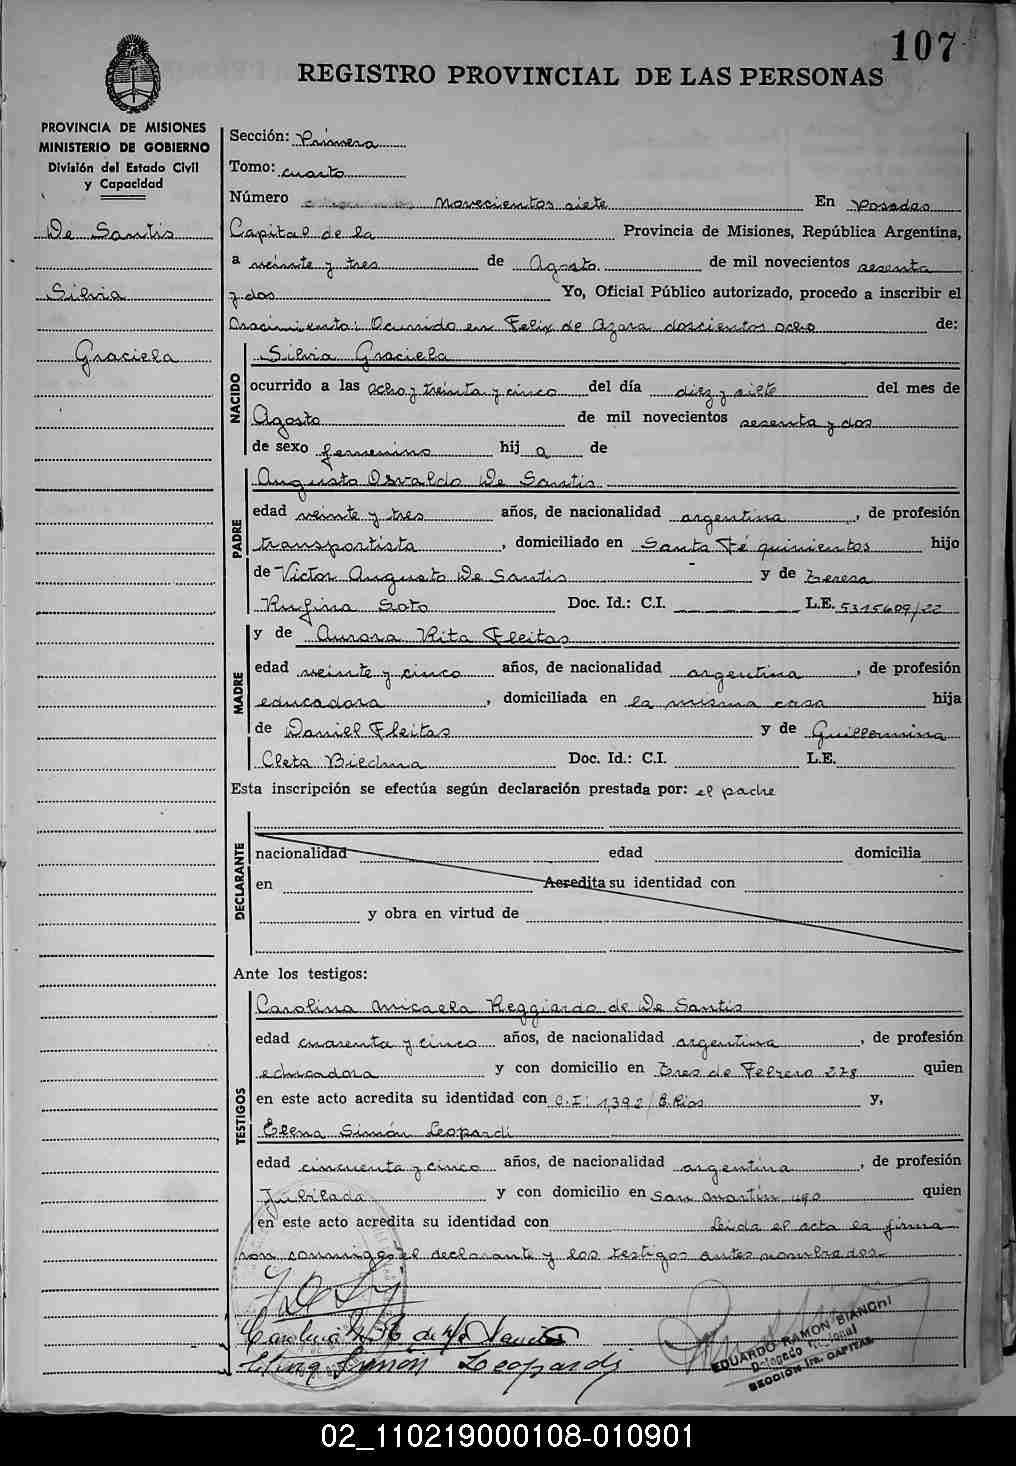 107
REGISTRO PROVINCIAL DE LAS PERSONAS
PROVINCIA DE MISIONES
MINISTERIO DE GOBIERNO
División del Estado Civil
y Capacidad
De Santis
Silvia
Graciela
Sección: Primera
Tomo: cuarto
Número novecientos siete En Posadas
Capital de la Provincia de Misiones, República Argentina,
a veinte y tres de Agosto de mil novecientos sesenta
y dos Yo, Oficial Público autorizado, procedo a inscribir el
Nacimiento: Ocurrido en Felix de Azara doscientos ocho de:
NACIDO
Silvia Graciela
ocurrido a las ocho y treinta y cinco del día diez y siete del mes de
Agosto de mil novecientos sesenta y dos
de sexo femenino hij a de
PADRE
Augusto Osvaldo De Santis
edad veinte y tres años, de nacionalidad argentina, de profesión
transportista, domiciliado en Santa Fé quinientos hijo
de Victor Augusto De Santis y de Teresa
Rufina Soto Doc. Id.: C.I. L.E. 5315609/22
MADRE
y de Aurora Rita Fleitas
edad veinte y cinco años, de nacionalidad argentina, de profesión
educadora, domiciliada en la misma casa hija
de Daniel Fleitas y de Guillermina
Cleta Biedma Doc. Id.: C.I. L.E.
Esta inscripción se efectúa según declaración prestada por: el padre
DECLARANTE
nacionalidad edad domicilia
en Acredita su identidad con
y obra en virtud de
Ante los testigos:
TESTIGOS
Carolina Micaela Reggiardo de De Santis
edad cuarenta y cinco años, de nacionalidad argentina, de profesión
educadora y con domicilio en Tres de Febrero 278 quien
en este acto acredita su identidad con C.I: 1,392/E.Rios y,
Elena Simón Leopardi
edad cincuenta y cinco años, de nacionalidad argentina, de profesión
Jubilada y con domicilio en San Martín 490 quien
en este acto acredita su identidad con Leida el acta la firma
ron conmigo el declarante y los testigos antes nombrados.
Carolina de De Santis
Elena Simon Leopardi
EDUARDO RAMON BIANCHI
Delegado Regional
SECCION 1ra. CAPITAL
02_110219000108-010901